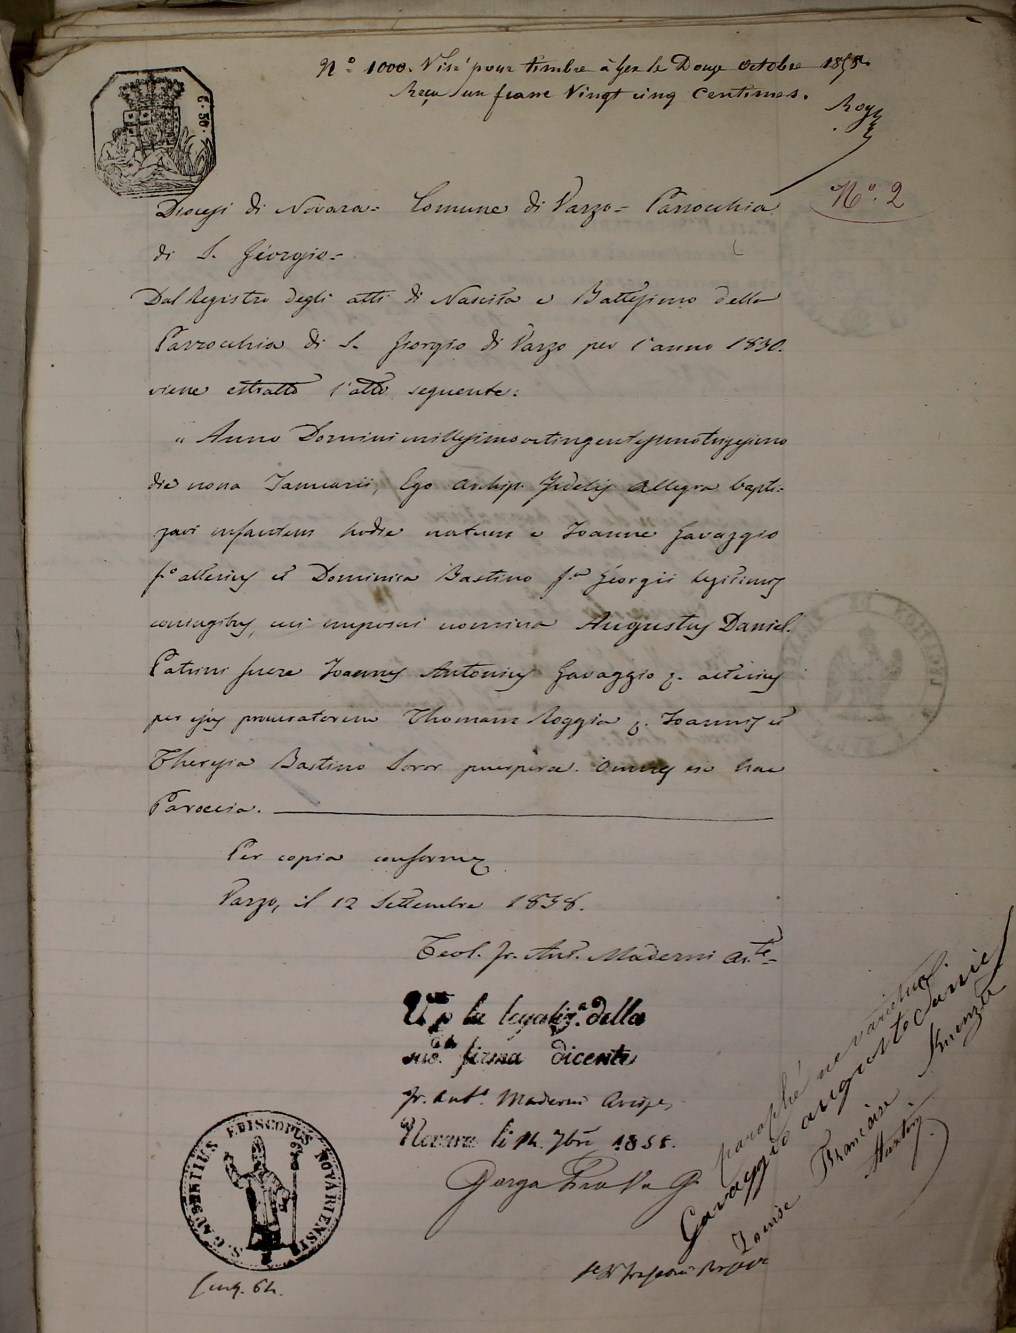 C. 50.
N.º 1000. Visé pour timbre à Gex le Douze Octobre 1858.
Reçu un franc Vingt cinq Centimes.
Roy
Nº. 2
Diocesi di Novara = Comune di Varzo = Parrocchia
di S. Giorgio =
Dal Registro degli atti di Nascita e Battesimo della
Parrocchia di S. Giorgio di Varzo per l'anno 1830.
viene estratto l'atto seguente:
„ Anno Domini millesimo octingentesimo trigesimo
die nona Januarii, Ego Archip. Fidelis Allegra bapti-
zavi infantem hodie natum e Joanne Gavaggio
f.º alterius et Dominica Bastino f.ª Georgii legitimis
coniugibus, cui imposui nomina Augustus Daniel.
Patrini fuere Joannes Antonius Gavaggio q. alterius
per ejus procuratorem Thomam Roggia q. Joannis et
Theresia Bastino Soror puerperæ. Omnes ex hac
Paroecia.
Per copia conforme
Varzo, il 12 Settembre 1858.
Teol. Gr. Ant. Maderni Ar.te
V.º p. la legaliz.ª della
sud.ta firma dicente
Gr. Ant.º Maderni Arcip.
Novara li 14. 7bre 1858.
S. GAUDENTIUS EPISCOPUS NOVARIENSIS
paraphé ne varietur
Gavaggio auguste Daniel
Louise Françoise